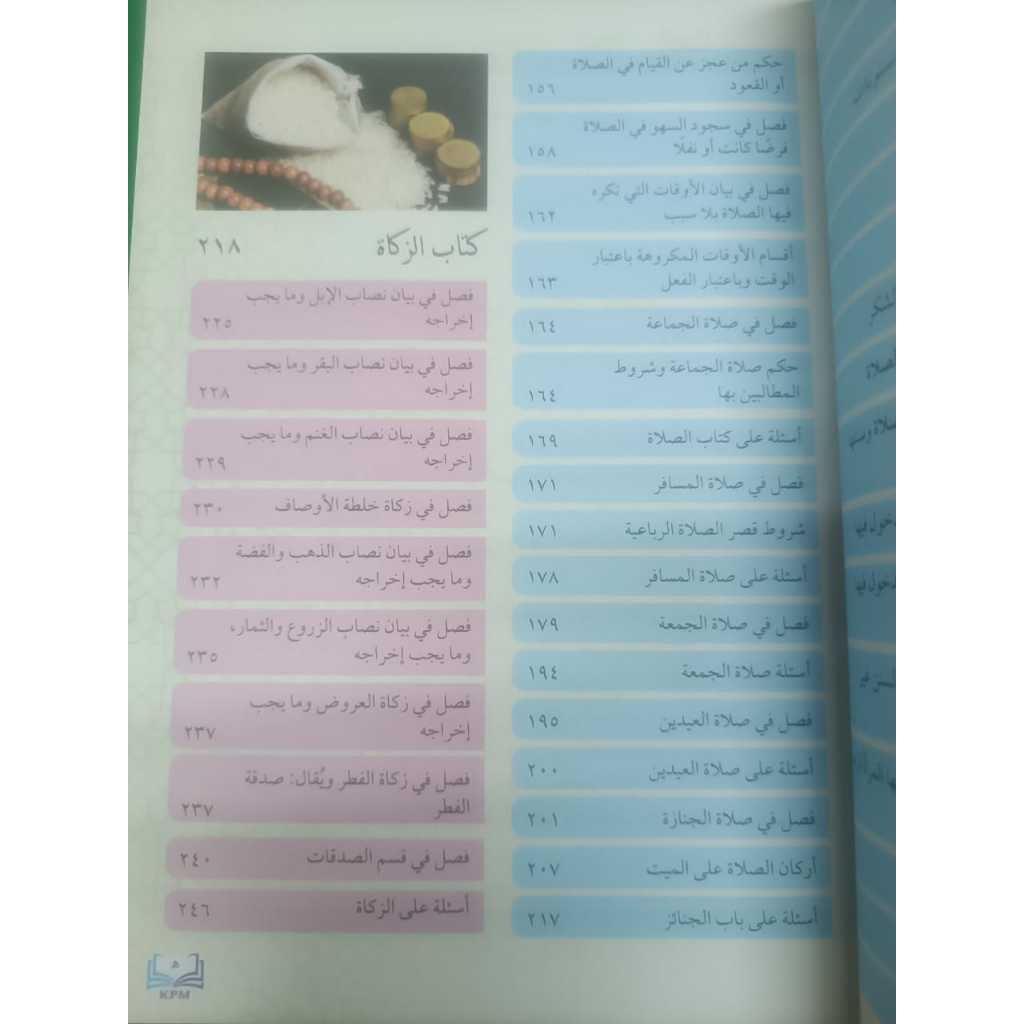 حكم من عجز عن القيام في الصلاة
أو القعود ١٥٦
فصل في سجود السهو في الصلاة
فرضًا كانت أو نفلًا ١٥٨
فصل في بيان الأوقات التي تكره
فيها الصلاة بلا سبب ١٦٢
أقسام الأوقات المكروهة باعتبار
الوقت وباعتبار الفعل ١٦٣
فصل في صلاة الجماعة ١٦٤
حكم صلاة الجماعة وشروط
المطالبين بها ١٦٤
أسئلة على كتاب الصلاة ١٦٩
فصل في صلاة المسافر ١٧١
شروط قصر الصلاة الرباعية ١٧١
أسئلة على صلاة المسافر ١٧٨
فصل في صلاة الجمعة ١٧٩
أسئلة صلاة الجمعة ١٩٤
فصل في صلاة العيدين ١٩٥
أسئلة على صلاة العيدين ٢٠٠
فصل في صلاة الجنازة ٢٠١
أركان الصلاة على الميت ٢٠٧
أسئلة على باب الجنائز ٢١٧
كتاب الزكاة ٢١٨
فصل في بيان نصاب الإبل وما يجب
إخراجه ٢٢٥
فصل في بيان نصاب البقر وما يجب
إخراجه ٢٢٨
فصل في بيان نصاب الغنم وما يجب
إخراجه ٢٢٩
فصل في زكاة خلطة الأوصاف ٢٣٠
فصل في بيان نصاب الذهب والفضة
وما يجب إخراجه ٢٣٢
فصل في بيان نصاب الزروع والثمار،
وما يجب إخراجه ٢٣٥
فصل في زكاة العروض وما يجب
إخراجه ٢٣٧
فصل في زكاة الفطر ويُقال: صدقة
الفطر ٢٣٧
فصل في قسم الصدقات ٢٤٠
أسئلة على الزكاة ٢٤٦
ه
KPM